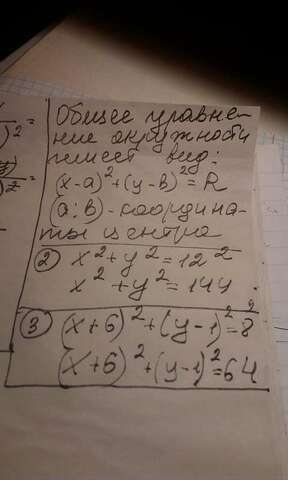 Общее уравне-
ние окружности
имеет вид:
(x-a)²+(y-b)²=R
(a;b)-координа-
ты центра
② x²+y²=12²
x²+y²=144
③ (x+6)²+(y-1)²=8²
(x+6)²+(y-1)²=64
)² =
z =